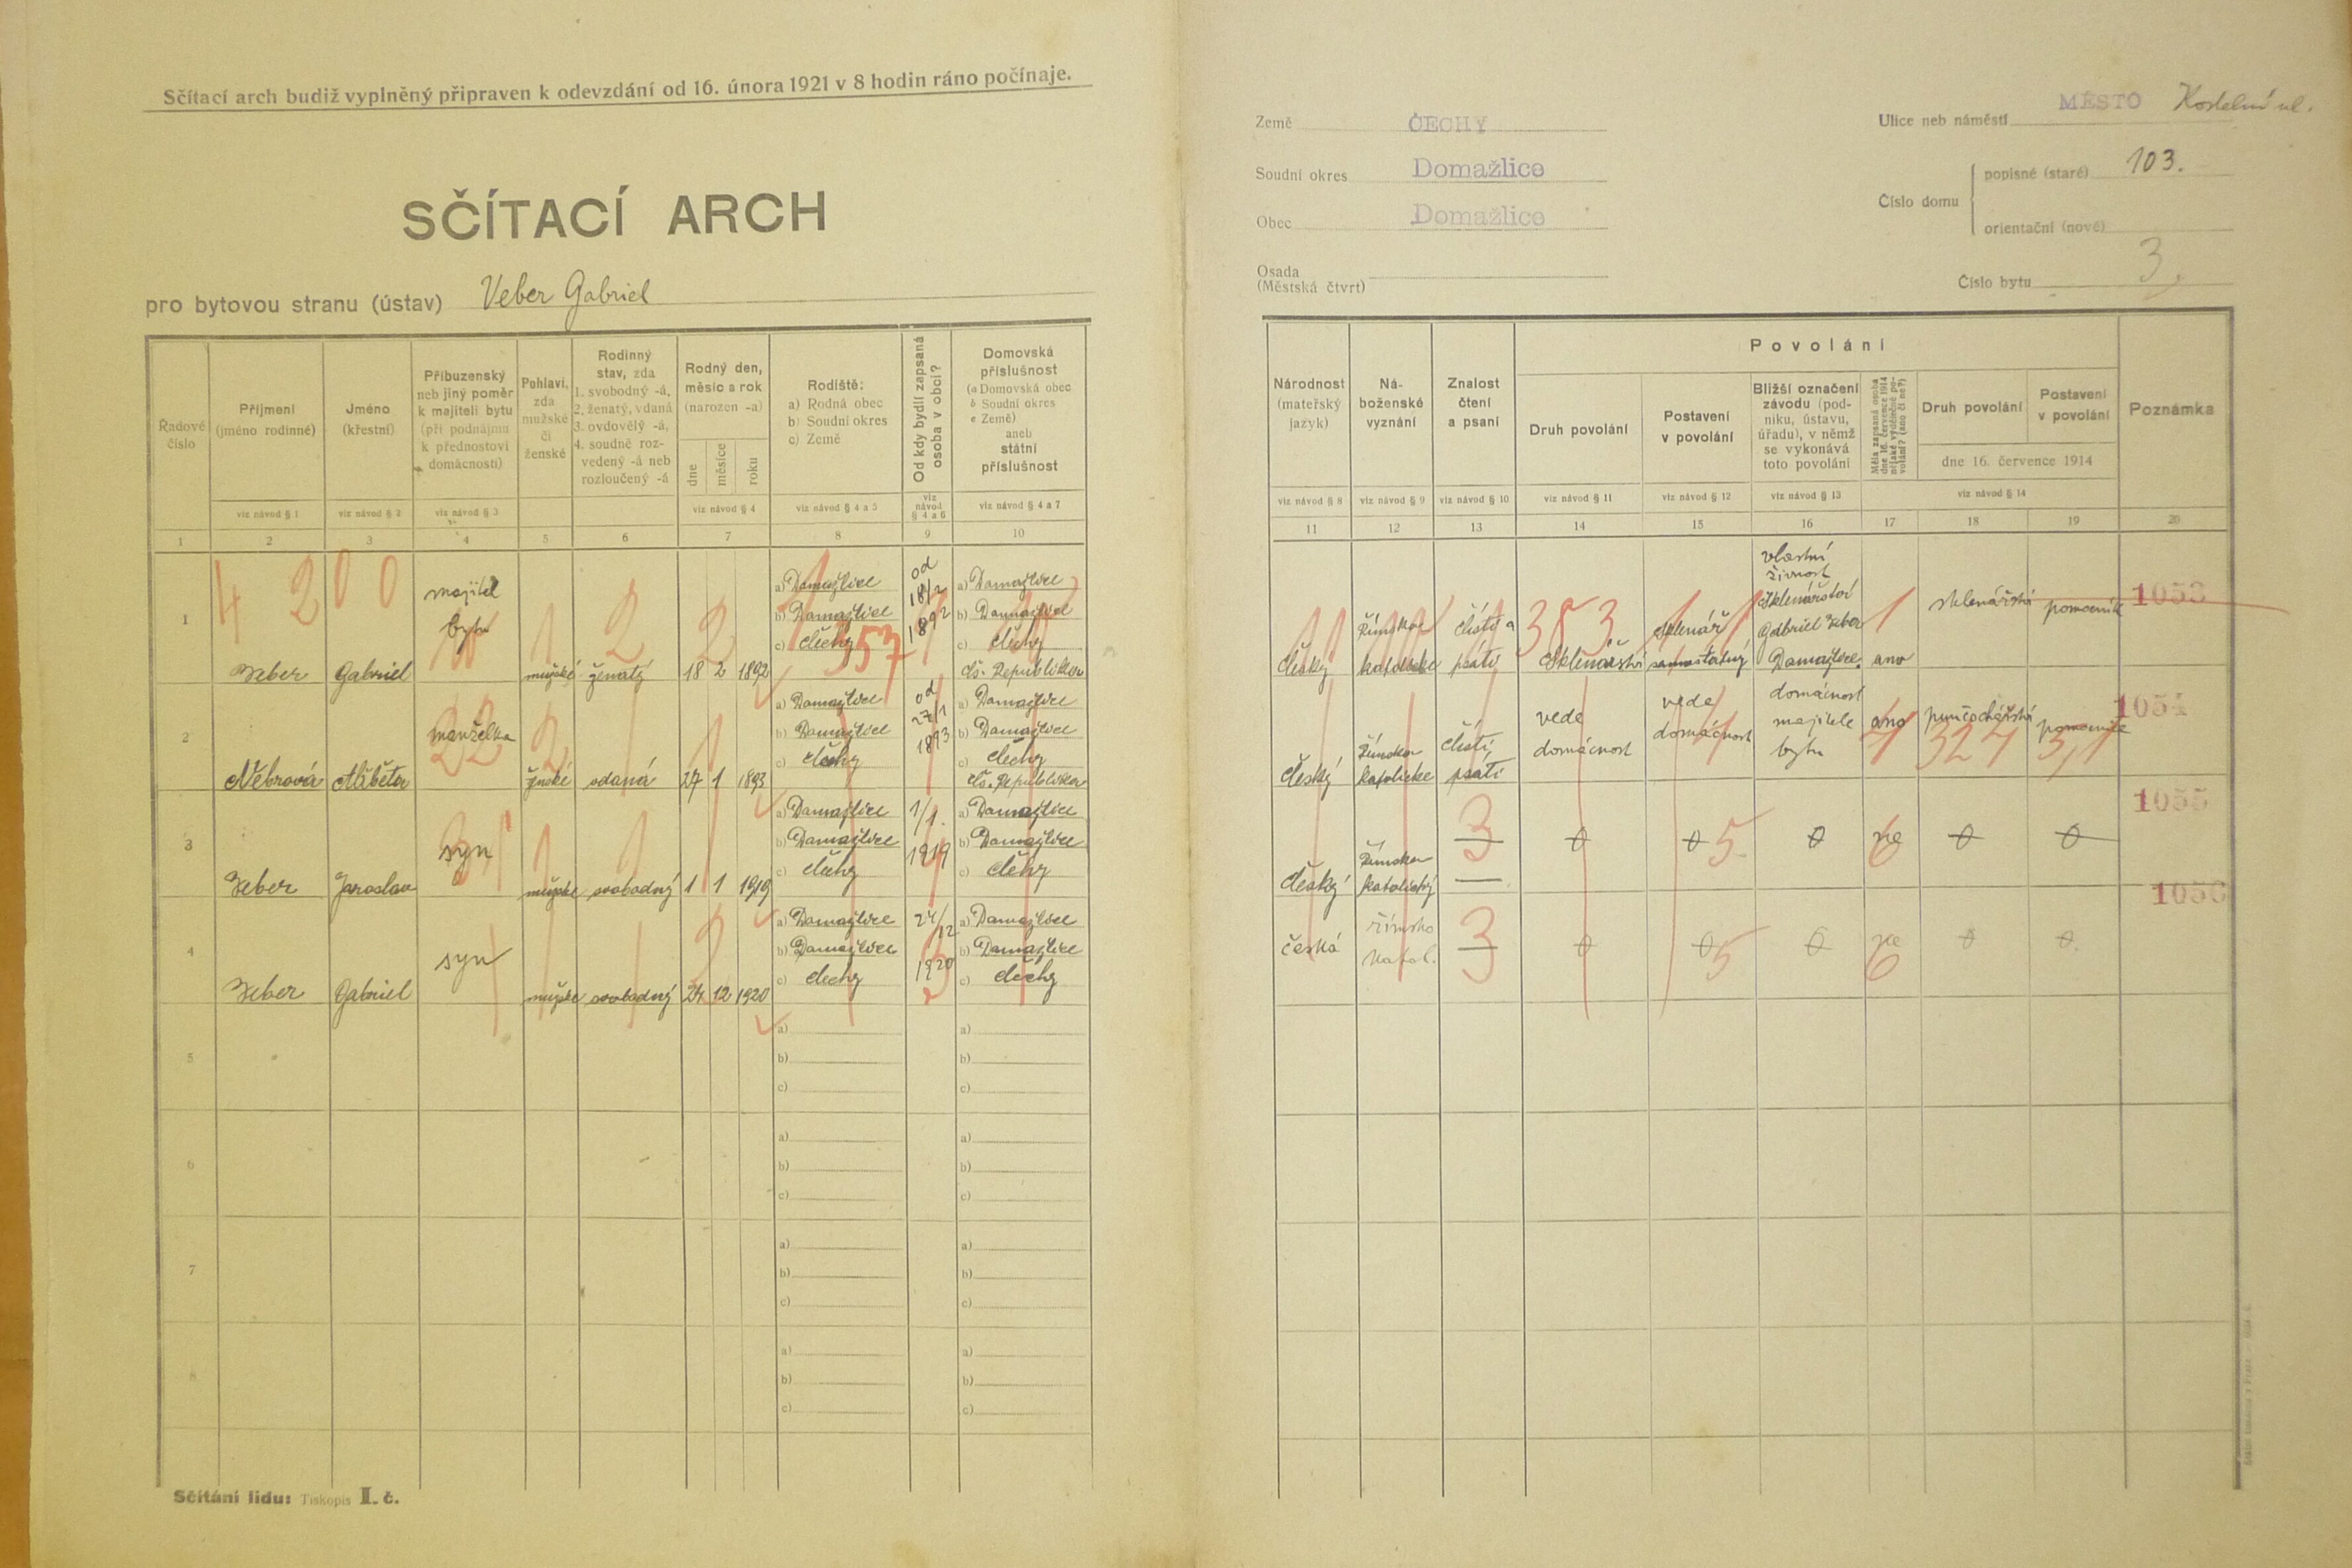 Sčítací arch budiž vyplněný připraven k odevzdání od 16. února 1921 v 8 hodin ráno počínaje.
SČÍTACÍ ARCH
pro bytovou stranu (ústav) Veber Gabriel
Země ČECHY
Soudní okres Domažlice
Obec Domažlice
Osada
(Městská čtvrt)
Ulice neb náměstí MĚSTO Kostelní ul.
Číslo domu
popisné (staré) 103.
orientační (nové)
Číslo bytu 3.
Řadové číslo
Příjmení (jméno rodinné)
Jméno (křestní)
Příbuzenský neb jiný poměr k majiteli bytu (při podnájmu k přednostovi domácnosti)
Pohlaví, zda mužské či ženské
Rodinný stav, zda 1. svobodný -á, 2. ženatý, vdaná 3. ovdovělý -á, 4. soudně rozvedený -á neb rozloučený -á
Rodný den, měsíc a rok (narozen -a)
dne
měsíce
roku
Rodiště:
a) Rodná obec
b) Soudní okres
c) Země
Od kdy bydlí zapsaná osoba v obci?
Domovská příslušnost
(a Domovská obec
b Soudní okres
c Země)
aneb státní příslušnost
viz návod § 1
viz návod § 2
viz návod § 3
viz návod § 4
viz návod § 4 a 5
viz návod § 4 a 6
viz návod § 4 a 7
1 2 3 4 5 6 7 8 9 10
Národnost (mateřský jazyk)
Náboženské vyznání
Znalost čtení a psaní
Povolání
Druh povolání
Postavení v povolání
Bližší označení závodu (podniku, ústavu, úřadu), v němž se vykonává toto povolání
Měla zapsaná osoba dne 16. července 1914 nějaké výdělečné povolání? (ano či ne?)
Druh povolání
Postavení v povolání
dne 16. července 1914
Poznámka
viz návod § 8
viz návod § 9
viz návod § 10
viz návod § 11
viz návod § 12
viz návod § 13
viz návod § 14
11 12 13 14 15 16 17 18 19 20
4 2 0 0
1
Veber
Gabriel
majitel
bytu
mužské
ženatý
18 2 1892
a) Domažlice
b) Domažlice
c) Čechy
357
od
18/2
1892
a) Domažlice
b) Domažlice
c) Čechy
Čs. Republika
český
římsko
katolické
čísti a
psáti
353
Sklenářství
sklenář
samostatný
vlastní
živnost
Sklenářství
Gabriel Veber
Domažlice.
ano
sklenářství
pomocník
1053
2
Alžběta
manželka
ženské
vdaná
27 1 1893
a) Domažlice
b) Domažlice
c) Čechy
od
27/1
1893
a) Domažlice
b) Domažlice
c) Čechy
Čs. Republika
český
římsko
katolické
čísti,
psáti
vede
domácnost
vede
domácnost
domácnost
majitele
bytu
ano
punčochářství
324
pomocnice
1054
3
Veber
Jaroslav
syn
mužské
svobodný
1 1 1919
a) Domažlice
b) Domažlice
c) Čechy
1/1.
1919
a) Domažlice
b) Domažlice
c) Čechy
český
římsko
katolický
3
0
0 5
0
ne
6
0
0
1055
4
Veber
Gabriel
syn
mužské
svobodný
24 12 1920
a) Domažlice
b) Domažlice
c) Čechy
24/12
1920
a) Domažlice
b) Domažlice
c) Čechy
česká
římsko
katol.
3
0
0 5
0
ne
6
0
0.
1056
5
a)
b)
c)
a)
b)
c)
6
a)
b)
c)
a)
b)
c)
7
a)
b)
c)
a)
b)
c)
8
a)
b)
c)
a)
b)
c)
Sčítání lidu: Tiskopis I. č.